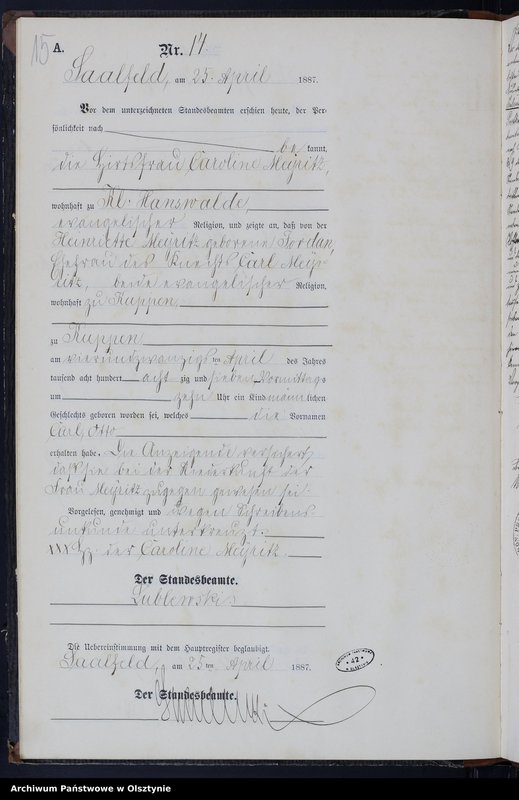 15
A.
Nr. 17.
Saalfeld, am 25. April 1887.
Vor dem unterzeichneten Standesbeamten erschien heute, der Per-
sönlichkeit nach
be kannt,
die Hirtsfrau Caroline Meyritz,
wohnhaft zu Kl. Hanswalde,
evangelischer Religion, und zeigte an, daß von der
Henriette Meyritz geborene Jordan,
Ehefrau des Knechts Carl Mey-
ritz, beide evangelischer Religion,
wohnhaft zu Kuppen
zu Kuppen
am vierundzwanzigsten April des Jahres
tausend acht hundert acht zig und sieben Vormittags
um zehn Uhr ein Kind männlichen
Geschlechts geboren worden sei, welches die Vornamen
Carl Otto
erhalten habe. Die Anzeigende versichert,
daß sie bei der Niederkunft der
Frau Meyritz zugegen gewesen sei.
Vorgelesen, genehmigt und wegen Schreibens-
unkunde unterkreuzt.
xxx der Caroline Meyritz.
Der Standesbeamte.
Lublewski
Die Uebereinstimmung mit dem Hauptregister beglaubigt.
Saalfeld, am 25ten April 1887.
Der Standesbeamte.
42
Archiwum Państwowe w Olsztynie